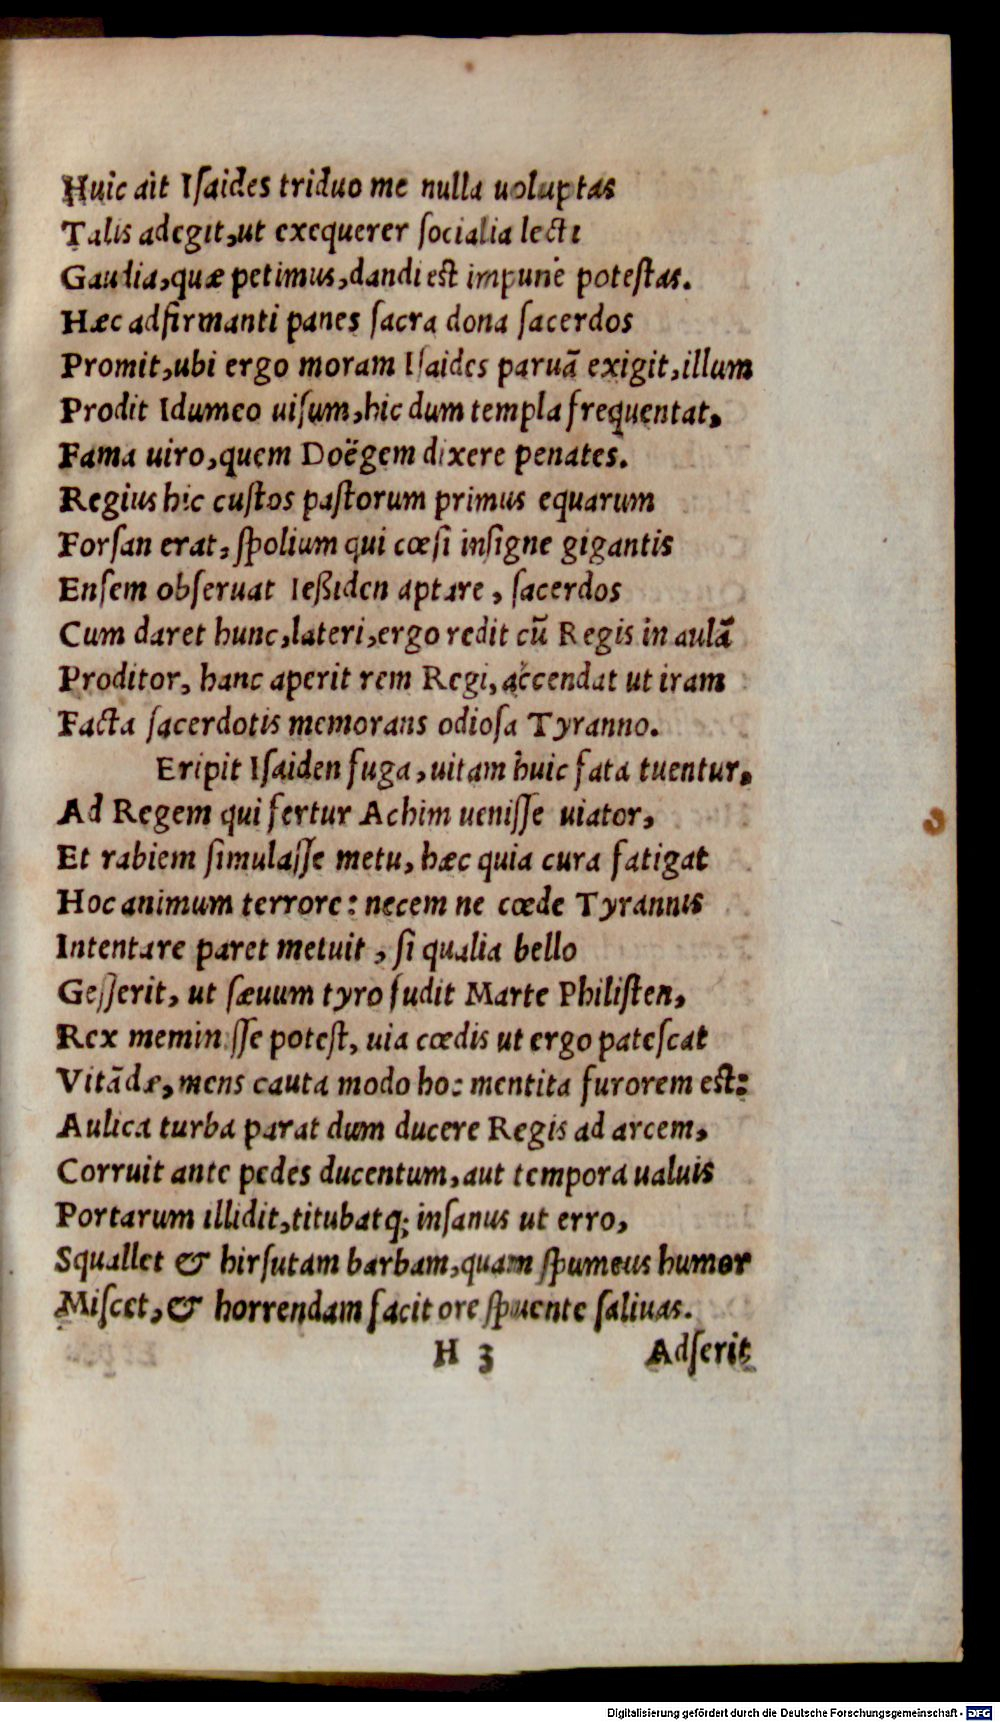 Huic ait Iſaides triduo me nulla uoluptas
Talis adegit, ut exequerer ſocialia lecti
Gaudia, quæ petimus, dandi est impune potestas.
Hæc adfirmanti panes ſacra dona ſacerdos
Promit, ubi ergo moram Iſaides paruā exigit, illum
Prodit Idumeo uiſum, hic dum templa frequentat,
Fama uiro, quem Doëgem dixere penates.
Regius hic cuſtos paſtorum primus equarum
Forſan erat, ſpolium qui cœſi inſigne gigantis
Enſem obſeruat Ießiden aptare, ſacerdos
Cum daret hunc, lateri, ergo redit cū Regis in aulā
Proditor, hanc aperit rem Regi, accendat ut iram
Facta ſacerdotis memorans odioſa Tyranno.
Eripit Iſaiden fuga, uitam huic fata tuentur,
Ad Regem qui fertur Achim ueniſſe uiator,
Et rabiem ſimulaſſe metu, hæc quia cura fatigat
Hoc animum terrore: necem ne cœde Tyrannus
Intentare paret metuit, ſi qualia bello
Geſſerit, ut ſæuum tyro fudit Marte Philiſten,
Rex meminiſſe poteſt, uia cœdis ut ergo pateſcat
Vitādæ, mens cauta modo hoc mentita furorem eſt:
Aulica turba parat dum ducere Regis ad arcem,
Corruit ante pedes ducentum, aut tempora ualuis
Portarum illidit, titubatq; inſanus ut erro,
Squallet & hirſutam barbam, quam ſpumeus humor
Miſcet, & horrendam facit ore ſpuente ſaliuas.
H 3 Adſerit
Digitalisierung gefördert durch die Deutsche Forschungsgemeinschaft - DFG